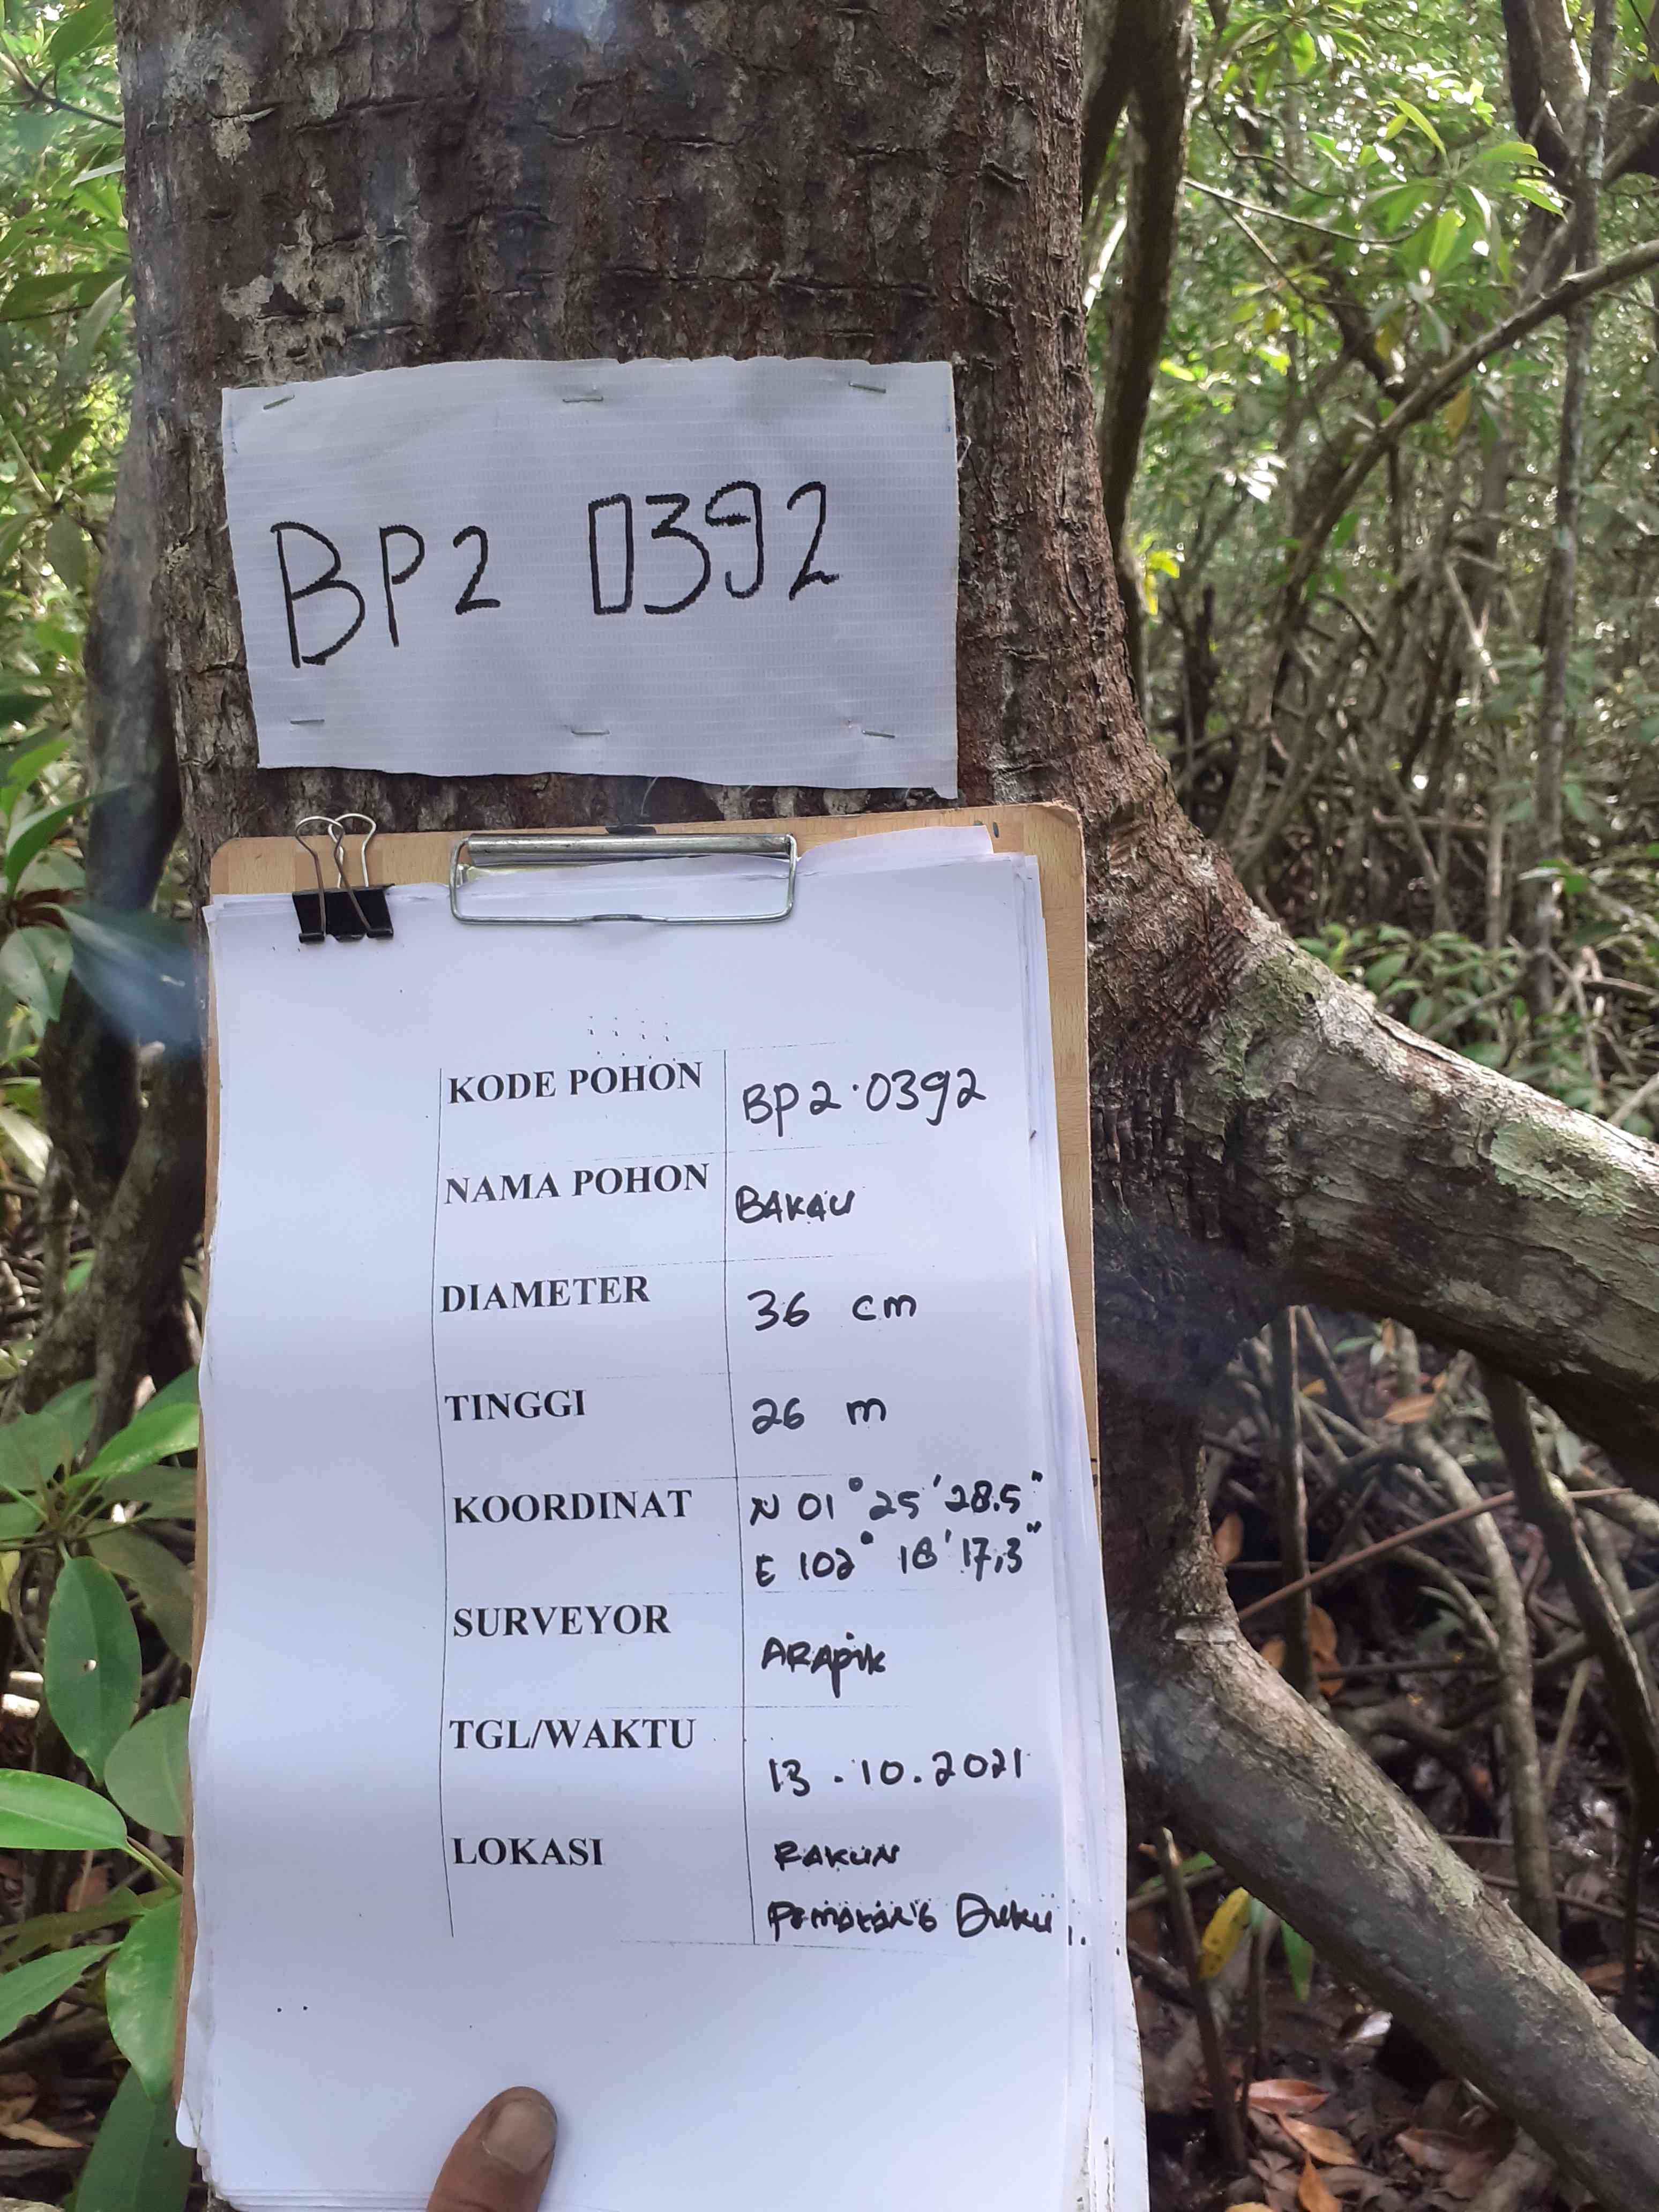 BP2 0392
KODE POHON BP2.0392
NAMA POHON BAKAU
DIAMETER 36 cm
TINGGI 26 m
KOORDINAT N 01° 25' 28.5"
E 102° 18' 17,3"
SURVEYOR ARAPIK
TGL/WAKTU 13.10.2021
LOKASI